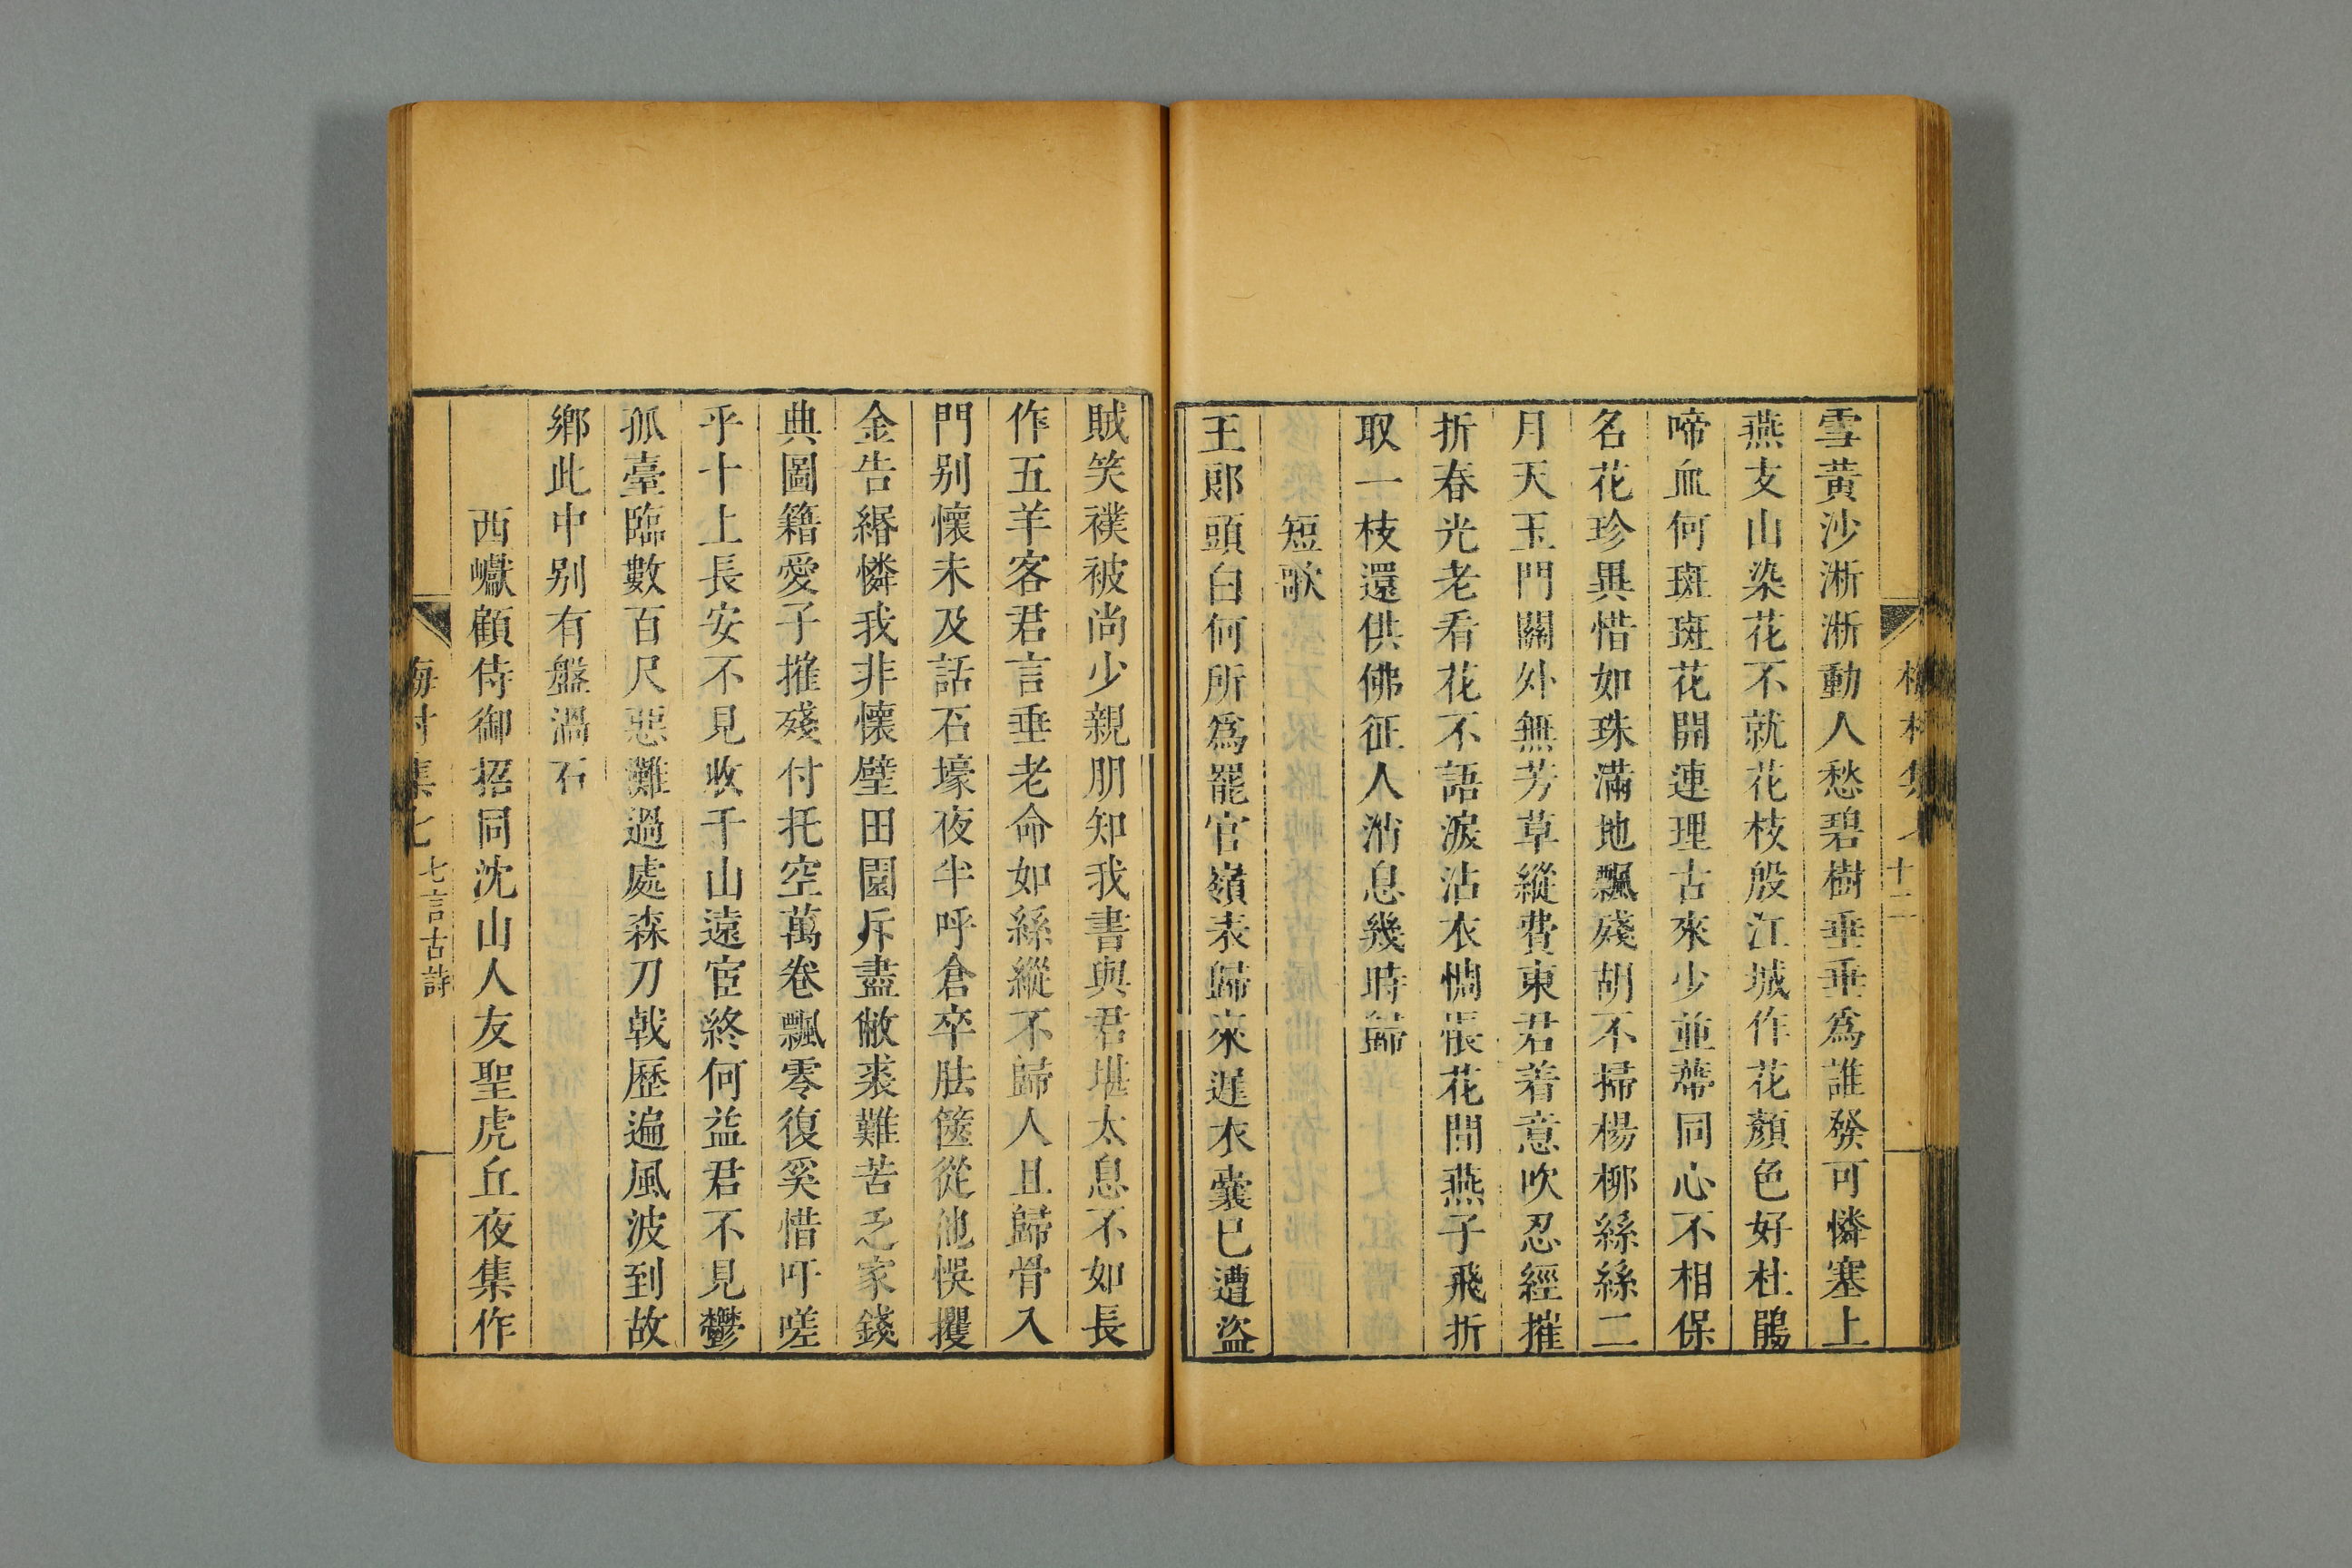 雪黃沙淅淅動人愁碧樹垂垂爲誰發可憐塞上
燕支山染花不就花枝殷江城作花顏色好杜鵑
啼血何斑斑花開連理古來少並蔕同心不相保
名花珍異惜如珠滿地飄殘胡不掃楊柳絲絲二
月天玉門關外無芳草縱費東君着意吹忍經摧
折春光老看花不語淚沾衣惆悵花間燕子飛折
取一枝還供佛征人消息幾時歸
短歌
王郎頭白何所爲罷官嶺表歸來遲衣囊已遭盜
賊笑襆被尚少親朋知我書與君堪太息不如長
作五羊客君言垂老命如絲縱不歸人且歸骨入
門别懷未及話石壕夜半呼倉卒胠篋從他悞攫
金告緡憐我非懷璧田園斥盡敝裘難苦乏家錢
典圖籍愛子摧殘付托空萬卷飄零復奚惜吁嗟
乎十上長安不見收千山遠宦終何益君不見鬱
孤臺臨數百尺惡灘過處森刀戟歷遍風波到故
鄉此中别有盤渦石
西巘顧侍御招同沈山人友聖虎丘夜集作
梅村集七 七言古詩
十二